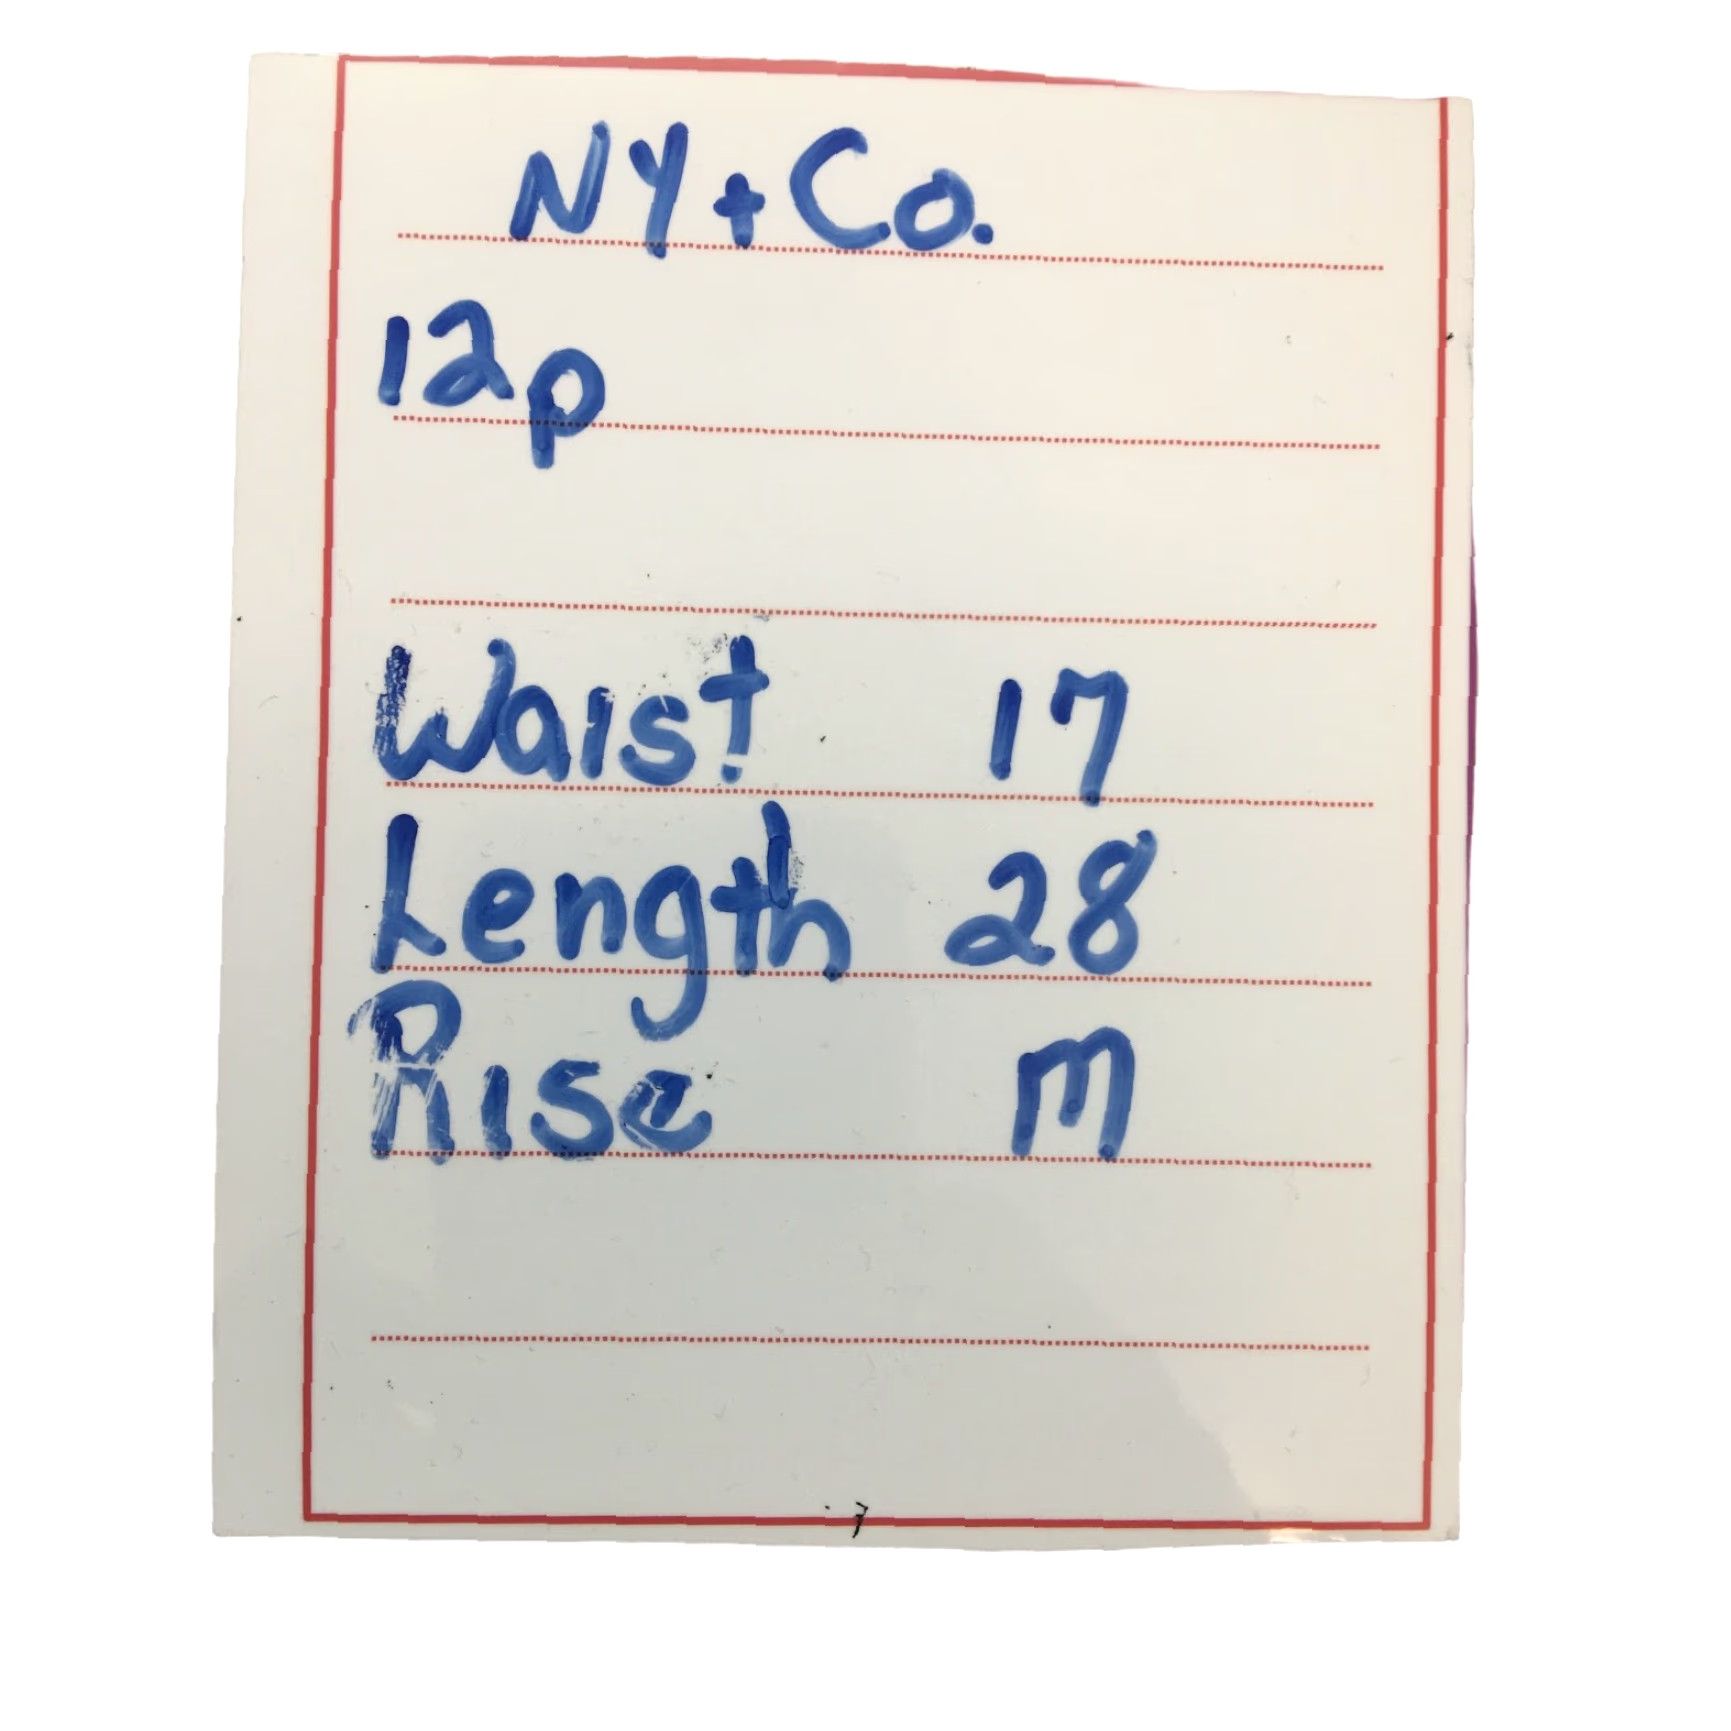 NY+Co.
12p
Waist 17
Length 28
Rise M